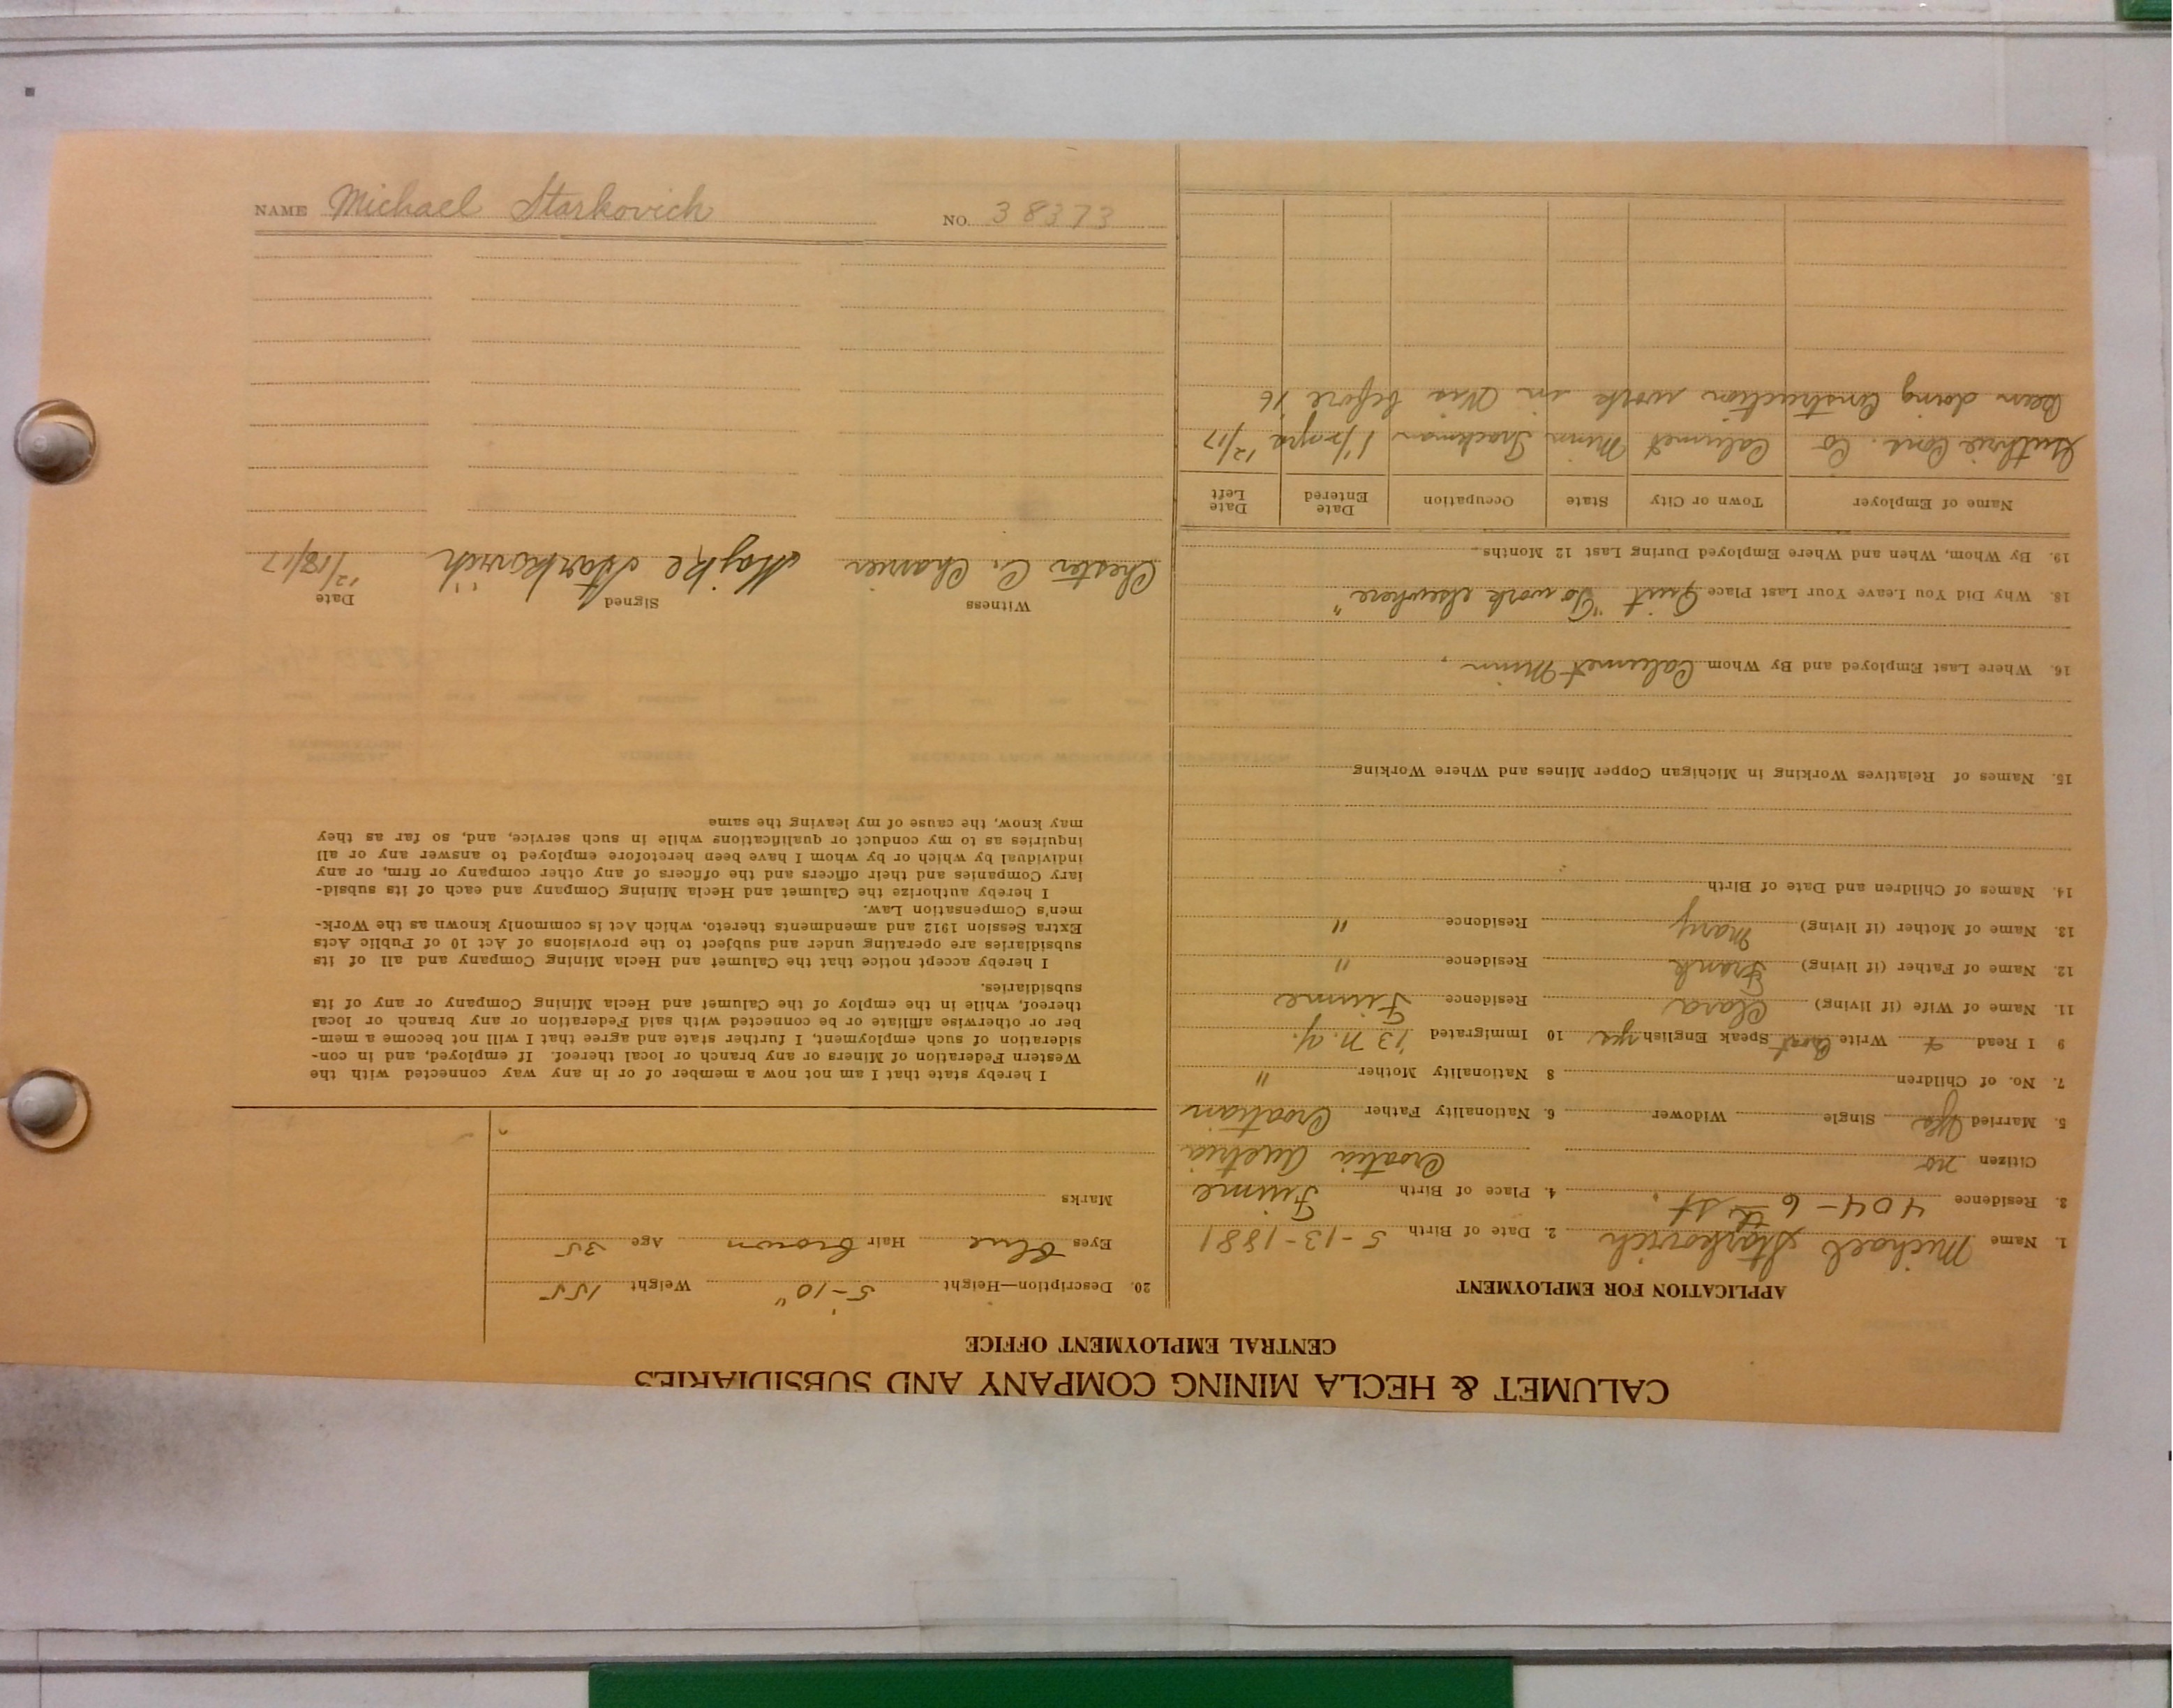 CALUMET & HECLA MINING COMPANY AND SUBSIDIARIES
CENTRAL EMPLOYMENT OFFICE
APPLICATION FOR EMPLOYMENT
1. Name Michael Starkovich 2. Date of Birth 5-13-1881
3. Residence 404-6th St. 4. Place of Birth Fiume
Citizen no Croatia Austria
5. Married Yes Single Widower 6. Nationality Father Croatian
7. No. of Children 8 Nationality Mother "
9 I Read Write Speak English yes 10 Immigrated '13 N.Y.
11. Name of Wife (if living) Clara Residence Fiume
12. Name of Father (if living) Frank Residence "
13. Name of Mother (if living) Mary Residence "
14. Names of Children and Date of Birth
15. Names of Relatives Working in Michigan Copper Mines and Where Working
16. Where Last Employed and By Whom Calumet Minn
18. Why Did You Leave Your Last Place Quit "To work elsewhere"
19. By Whom, When and Where Employed During Last 12 Months
Name of Employer Town or City State Occupation Date Entered Date Left
Guthrie Cons. Co Calumet Minn Trackman 1 1/2 12/17
Been doing Construction work in Wis before 16
20. Description—Height 5-10" Weight 155
Eyes Blue Hair Brown Age 35
Marks
I hereby state that I am not now a member of or in any way connected with the
Western Federation of Miners or any branch or local thereof. If employed, and in con-
sideration of such employment, I further state and agree that I will not become a mem-
ber or otherwise affiliate or be connected with said Federation or any branch or local
thereof, while in the employ of the Calumet and Hecla Mining Company or any of its
subsidiaries.
I hereby accept notice that the Calumet and Hecla Mining Company and all of its
subsidiaries are operating under and subject to the provisions of Act 10 of Public Acts
Extra Session 1912 and amendments thereto, which Act is commonly known as the Work-
men's Compensation Law.
I hereby authorize the Calumet and Hecla Mining Company and each of its subsid-
iary Companies and their officers and the officers of any other company or firm, or any
individual by which or by whom I have been heretofore employed to answer any or all
inquiries as to my conduct or qualifications while in such service, and, so far as they
may know, the cause of my leaving the same
Witness Signed Date
Chester C. Majke Starkovich 12/18/17
NAME Michael Starkovich NO. 38373